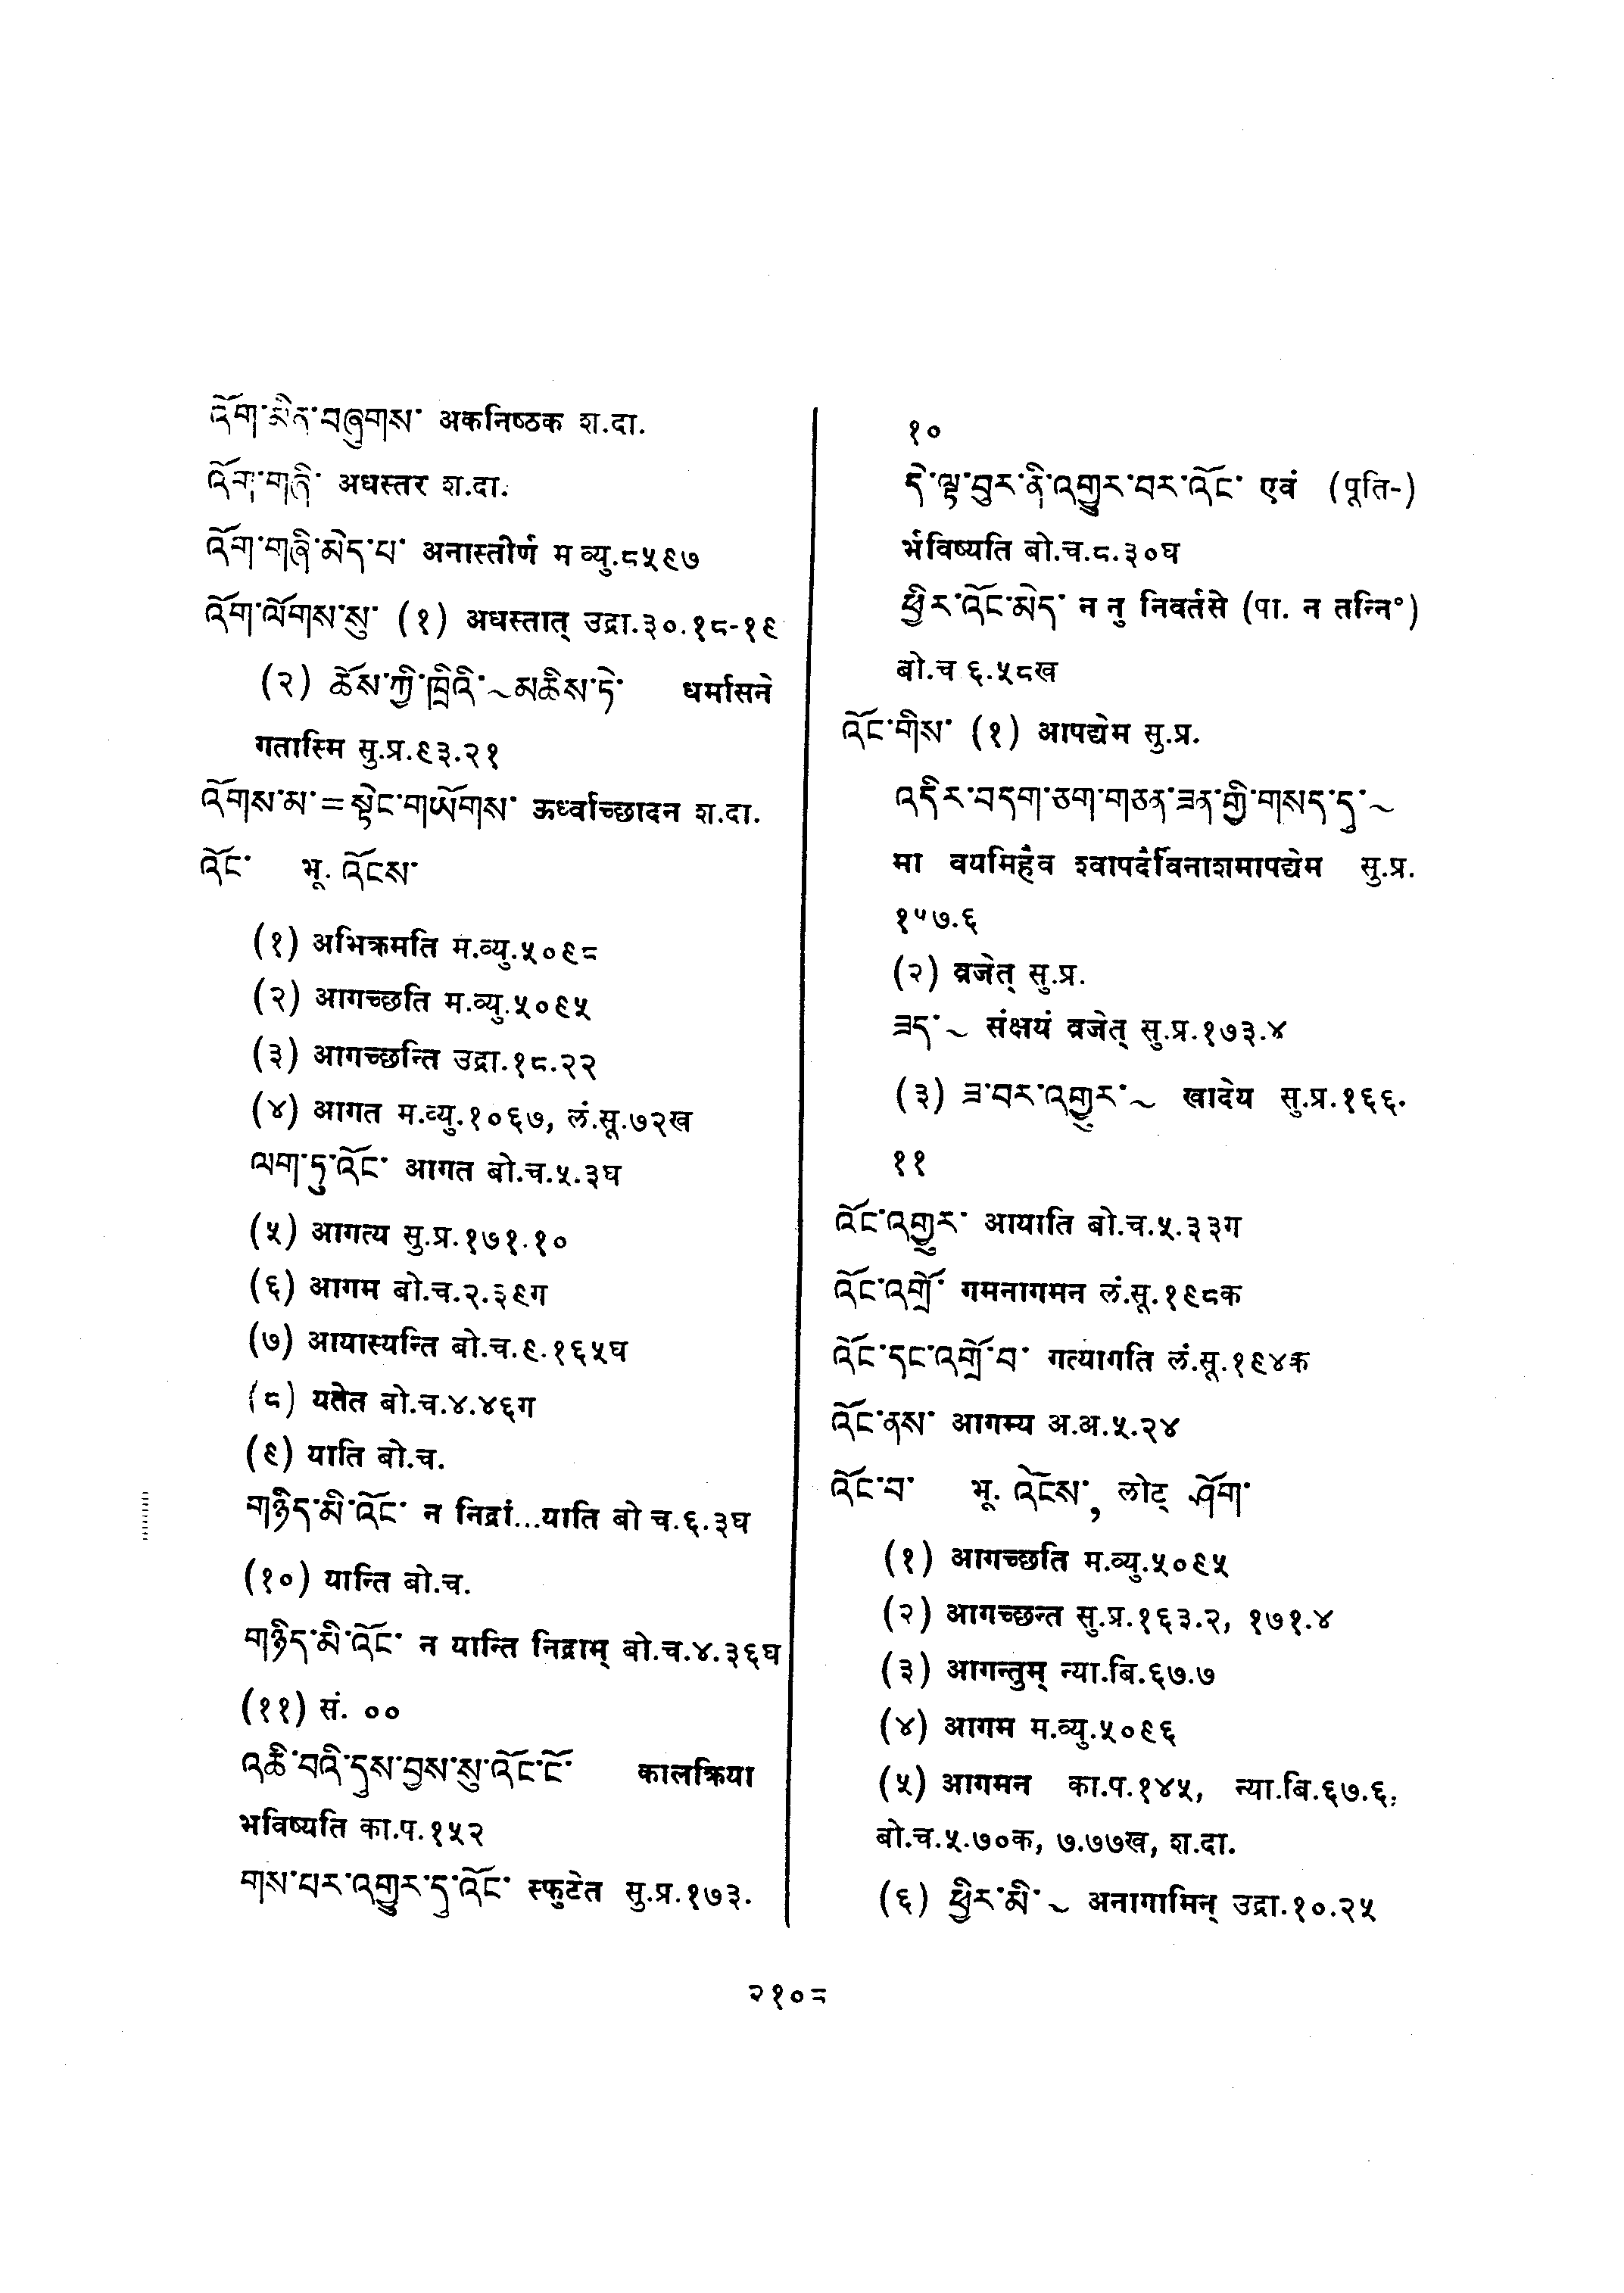 འོག་མིན་བཞུགས་ अकनिष्ठक श.दा.
འོག་གཞི་ अधस्तर श.दा.
འོག་གཞི་མེད་པ་ अनास्तीर्ण म व्यु.८५९७
འོག་ལོགས་སུ་ (१) अधस्तात् उद्रा.३०.१८-१९
(२) ཆོས་ཀྱི་ཁྲིའི་~མཆིས་ཏེ་ धर्मासने
गतास्मि सु.प्र.९३.२१
འོགས་མ་=སྟེང་གཡོགས་ ऊर्ध्वाच्छादन श.दा.
འོང་ भू. འོངས་
(१) अभिक्रमति म.व्यु.५०९८
(२) आगच्छति म.व्यु.५०९५
(३) आगच्छन्ति उद्रा.१८.२२
(४) आगत म.व्यु.१०६७, लं.सू.७२ख
ལག་ཏུ་འོང་ आगत बो.च.५.३घ
(५) आगत्य सु.प्र.१७१.१०
(६) आगम बो.च.२.३९ग
(७) आयास्यन्ति बो.च.९.१६५घ
(८) यतेत बो.च.४.४६ग
(९) याति बो.च.
གཉིད་མི་འོང་ न निद्रां...याति बो च.६.३घ
(१०) यान्ति बो.च.
གཉིད་མི་འོང་ न यान्ति निद्राम् बो.च.४.३६घ
(११) सं. ००
འཆི་བའི་དུས་བྱས་སུ་འོང་ངོ་ कालक्रिया
भविष्यति का.प.१५२
གས་པར་འགྱུར་དུ་འོང་ स्फुटेत सु.प्र.१७३.
१०
དེ་ལྟ་བུར་ནི་འགྱུར་བར་འོང་ एवं (पूति-)
र्भविष्यति बो.च.८.३०घ
ཕྱིར་འོང་མེད་ न नु निवर्तसे (पा. न तन्नि°)
बो.च ६.५८ख
འོང་གིས་ (१) आपद्येम सु.प्र.
འདིར་བདག་ཅག་གཅན་ཟན་གྱི་གསད་དུ་~
मा वयमिहैव श्वापदैर्विनाशमापद्येम सु.प्र.
१५७.६
(२) व्रजेत् सु.प्र.
ཟད་~ संक्षयं व्रजेत् सु.प्र.१७३.४
(३) ཟ་བར་འགྱུར་~ खादेय सु.प्र.१६६.
११
འོང་འགྱུར་ आयाति बो.च.५.३३ग
འོང་འགྲོ་ गमनागमन लं.सू.१९८क
འོང་དང་འགྲོ་བ་ गत्यागति लं.सू.१९४क
འོང་ནས་ आगम्य अ.अ.५.२४
འོང་བ་ भू. འོངས་, लोट् ཤོག་
(१) आगच्छति म.व्यु.५०९५
(२) आगच्छन्त सु.प्र.१६३.२, १७१.४
(३) आगन्तुम् न्या.बि.६७.७
(४) आगम म.व्यु.५०९६
(५) आगमन का.प.१४५, न्या.बि.६७.६;
बो.च.५.७०क, ७.७७ख, श.दा.
(६) ཕྱིར་མི་~ अनागामिन् उद्रा.१०.२५
२१०८